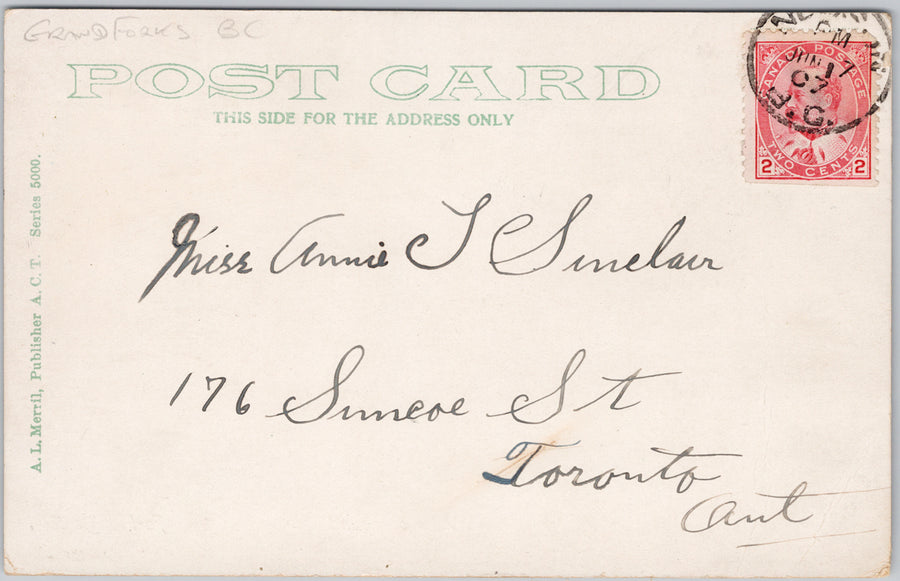 GRAND FORKS BC
POST CARD
THIS SIDE FOR THE ADDRESS ONLY
PM
JUN 17
07
B.C.
CANADA POSTAGE
TWO CENTS
2 2
A. L. Merril, Publisher A. C. T. Series 5000.
Miss Annie S Sinclair
176 Simcoe St
Toronto
Ont